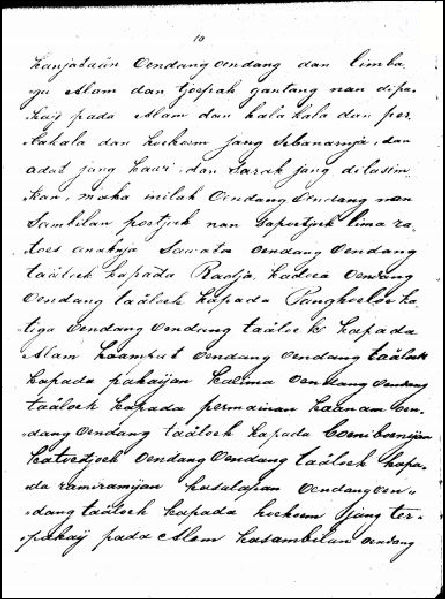 18
Kanjataän Oendang oendang dan limba
gu Alam dan Tjoepak gantang nan dipa
kaij pada Alam dan kala kala dan per
takala dan hoekoem jang sebanarnja, dan
adat jang kawi, dan Sarak jang dilasim
kan, maka inilah Oendang Oendang nan
Sambilan poetjoek nan sapoetjoek lima ra
toes anaknja Soewatoe oendang oendang
taäloek kapada Radja, kadoea Oendang
Oendang taäloek kapada Panghoeloe ka
tiga Oendang Oendang taäloek kapada
Alam kaämpat Oendang oendang taäloek
kapada pakaijan kalima Oendang oendang
taäloek kapada permainan kaänam oen
dang oendang taäloek kapada boenibo
katoedjoeh Oendang Oendang taäloek kapa
da ramiramijan kasalapan Oendang oen
dang taäloek kapada hoekoem jang ter
pakaij pada Alam kasambilan Oendang